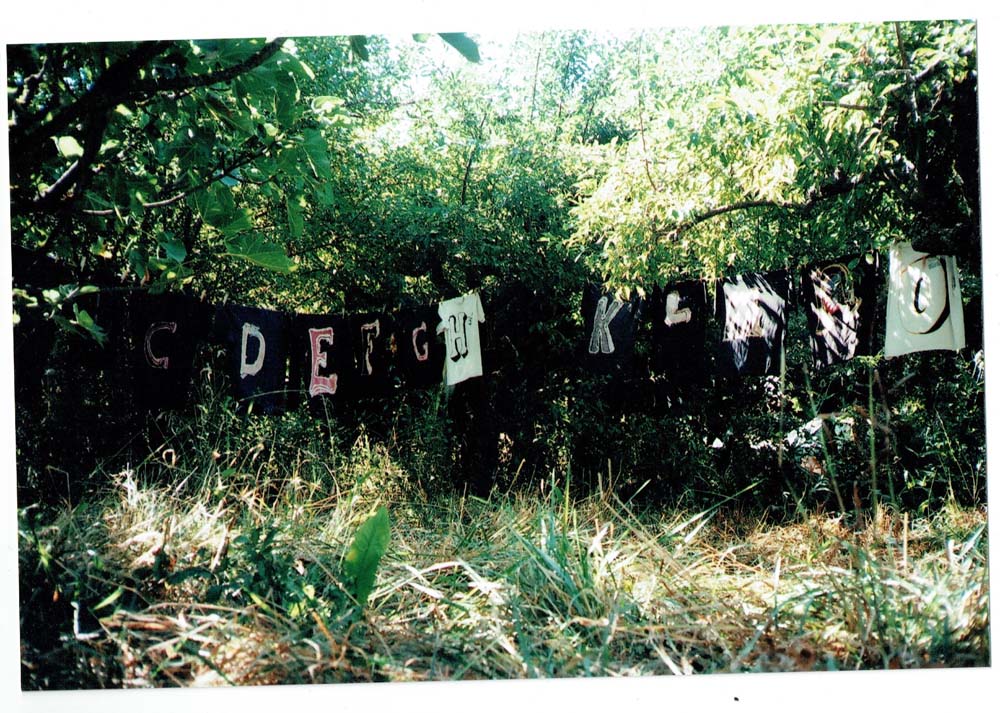 C D E F G H K L O